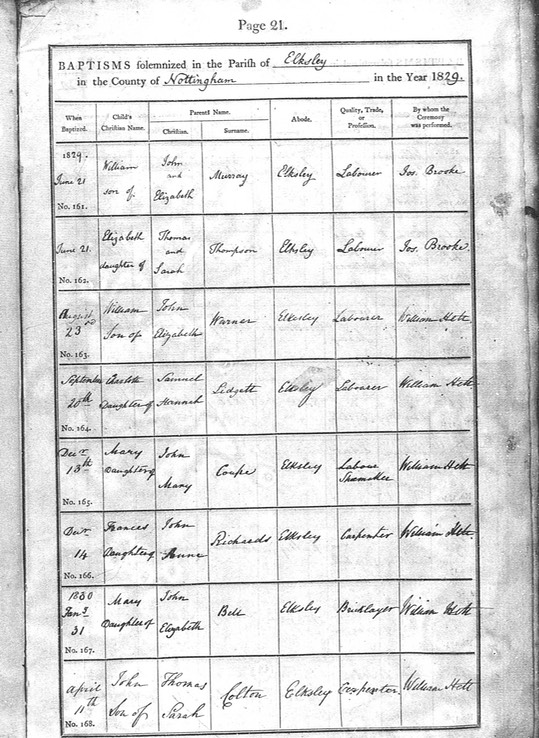 Page 21.
BAPTISMS solemnized in the Parish of Elksley
in the County of Nottingham in the Year 1829.
When Baptized. Child's Christian Name. Parents Name. Christian. Surname. Abode. Quality, Trade, or Profession. By whom the Ceremony was performed.
1829.
June 21 William son of John and Elizabeth Murray Elksley Labourer Jos. Brooke
No. 161.
June 21. Elizabeth daughter of Thomas and Sarah Thompson Elksley Labourer Jos. Brooke.
No. 162.
August 23rd William Son of John Elizabeth Warner Elkesley Labourer William Hett
No. 163.
September 20th Charlotte Daughter of Samuel Hannah Lidgett Elksley Labourer William Hett
No. 164.
Decr 13th Mary Daughter of John Mary Coupe Elksley William Hett
No. 165.
Decr 14 Frances Daughter of John Anne Richards Elksley Carpenter William Hett
No. 166.
1830
Jany 31 Mary Daughter of John Elizabeth Bell Elksley Bricklayer William Hett
No. 167.
April 11th John Son of Thomas Sarah Colton Elksley Carpenter William Hett
No. 168.